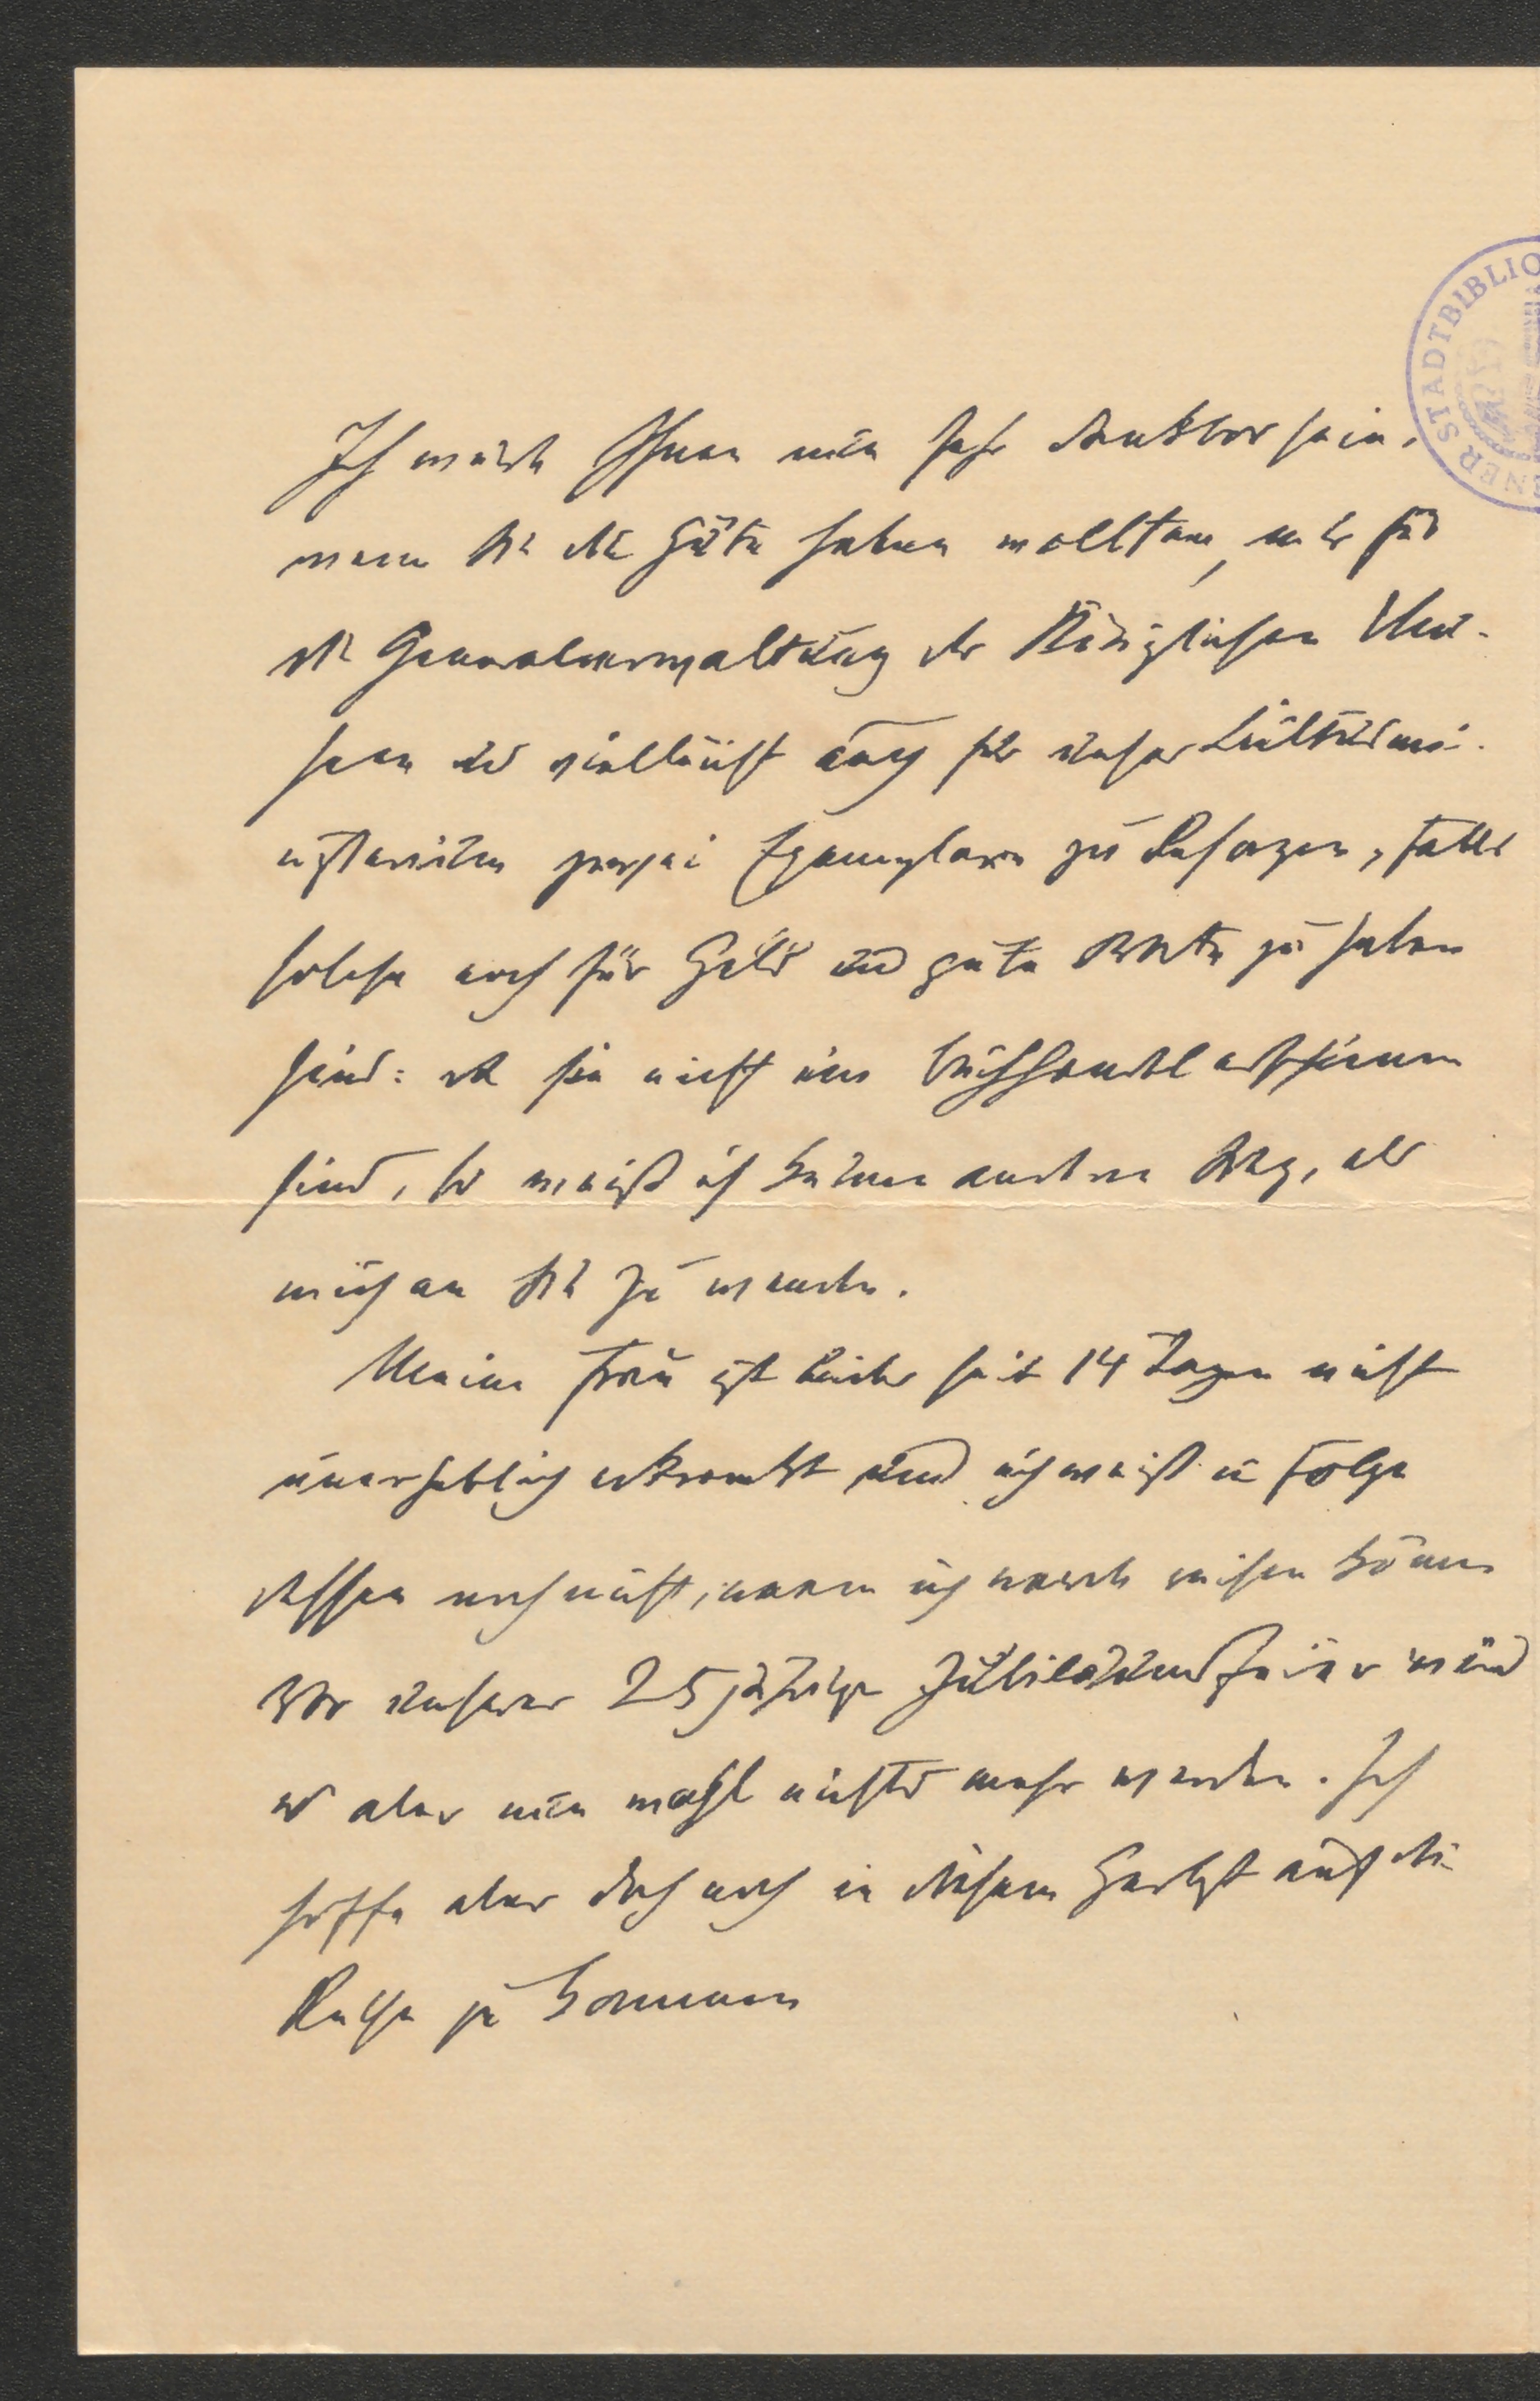 Ich würde Ihnen nun sehr dankbar sein,
wenn Sie die Güte haben wollten, mir für
die Generalverwaltung der Königlichen Mu-
seen und vielleicht auch für unser Kultusmi-
nisterium zwei Exemplare zu besorgen, falls
solche noch für Geld und gute Worte zu haben
sind: da sie nicht im Buchhandel erschienen
sind, so weiß ich keinen anderen Weg, als
mich an Sie zu wenden.
Meine Frau ist leider seit 14 Tagen nicht
unerheblich erkrankt und ich weiß in Folge
dessen noch nicht, wann ich werde reisen können
Vor unserer 25jährige Jubiläumsfeier wird
es aber nun wohl nichts mehr werden. Ich
hoffe aber doch noch in diesem Herbst auf die
Reise zu kommen
NER STADTBIBLIO